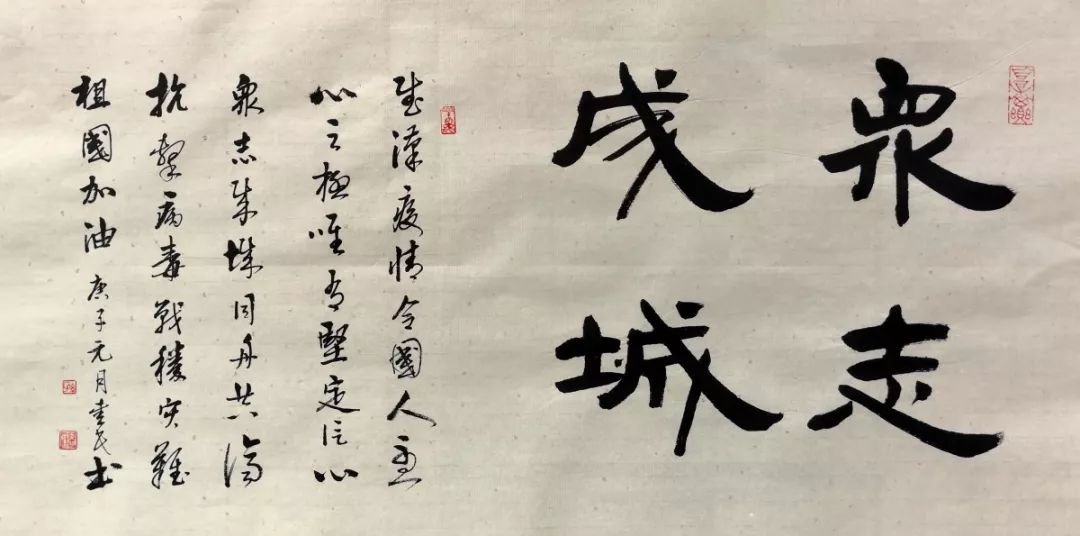 眾志
成城
武漢疫情令國人憂
心之極唯有堅定信心
眾志成城同舟共濟
抗擊病毒戰灾難
祖國加油 庚子元月書